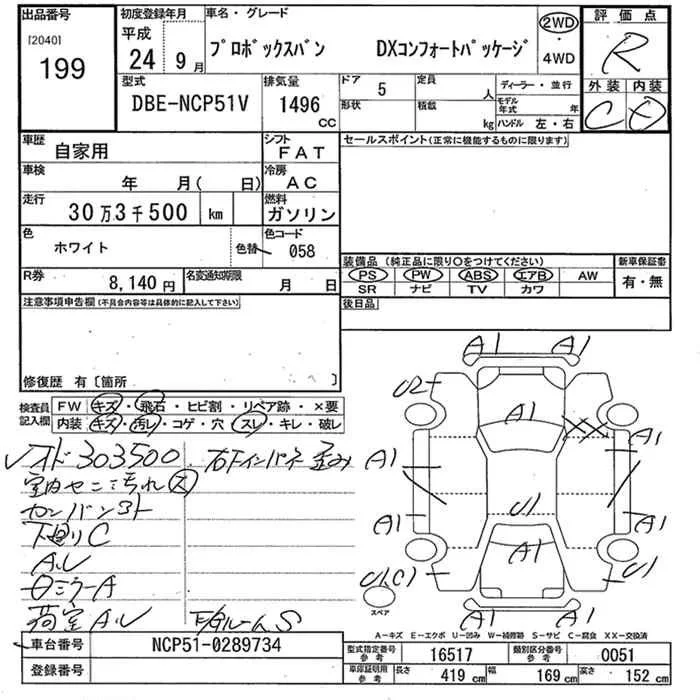 出品番号 初度登録年月 車名・グレード 評価点
[2040] 平成 2WD
199 24年 9月 プロボックスバン DXコンフォートパッケージ ・ R
4WD
型式 排気量 ドア 5 定員 人 ディーラー・並行 外装 内装
DBE-NCP51V 1496 CC 形状 積載 kg モデル年式 年 C
ハンドル 左・右
車歴 自家用 シフト FAT セールスポイント(正常に機能するものに限ります)
車検 年 月( 日) 冷房 AC
走行 30万3千500 km 燃料 ガソリン
色 ホワイト 色替 色コード 058
装備品(純正品に限り○をつけてください) 新車保証書
R券 8,140円 名変通知期限 月 日 PS PW ABS エアB AW 有・無
SR ナビ TV カワ
注意事項申告欄(不具合内容等は具体的に記入して下さい) 後日品
修復歴 有〔箇所 〕
検査員記入欄 FW キズ・飛石・ヒビ割・リペア跡・×要
内装 キズ・汚レ・コゲ・穴・スレ・キレ・破レ
303500
室内
下廻りC
A,U
ロミラーA
荷室A,U
A1 A1
U2
A1
A1 A1
A1 U1 A1
A1
U1 C1 U1
スペア A1 A1
A-キズ E-エクボ U-凹み W-補修跡 S-サビ C-腐食 XX-交換済
車台番号 NCP51-0289734 型式指定番号 参考 16517 類別区分番号 参考 0051
登録番号 車庫証明用 参考 長さ 419cm 幅 169cm 高さ 152cm